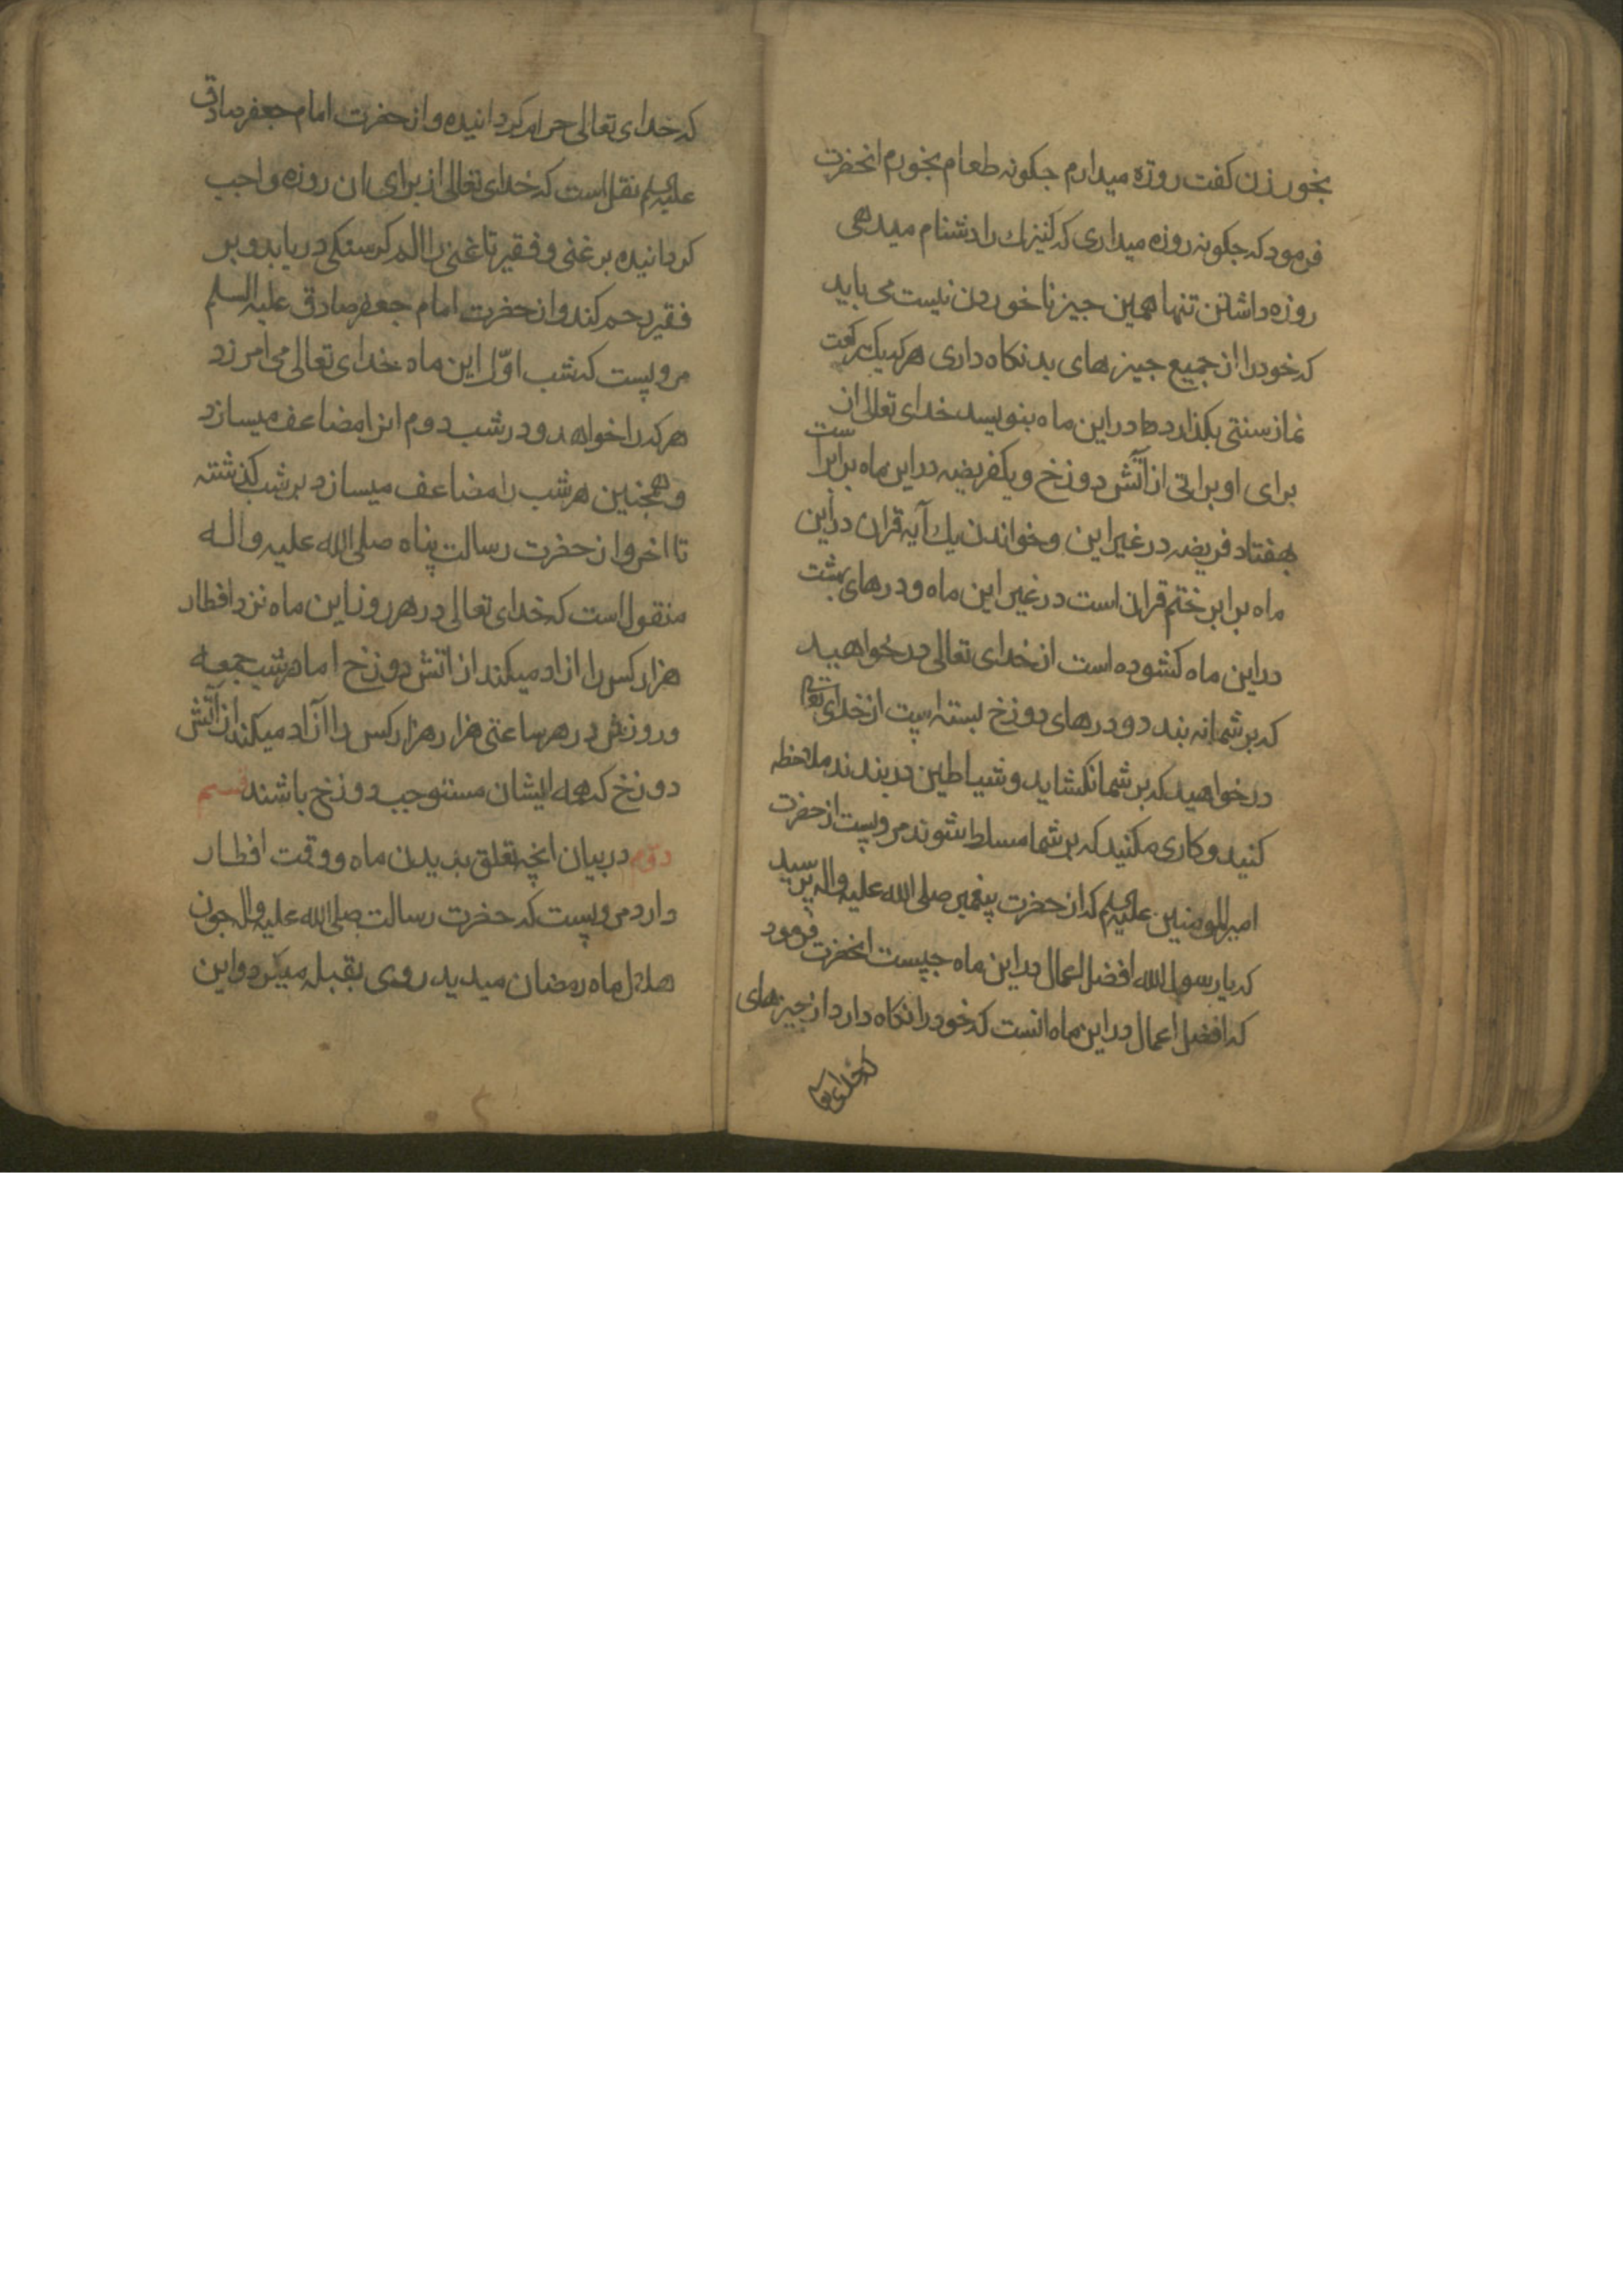 بخور زن کفت روزه میدارم جکونه طعام بخورم انحضرت
فرمود که جکونه روزه میداری که کنیزك را دشنام میدهی
روزه داشتن تنها همین جیز ناخوردن نیست می باید
که خود را از جمیع جیزهای بد نکاه داری هر که یك رکعت
نماز سنتی بکذارد در این ماه بنویسد خدای تعالی از
برای او براتی از آتش دوزخ و یکفریضه در این ماه برابر است
بهفتاد فریضه در غیر این وخواندن یك آیه قران در این
ماه برابر ختم قران است در غیر این ماه و درهای بهشت
در این ماه کشوده است از خدای تعالی در خواهید
که بر شما نه بندد و درهای دوزخ بسته است از خدای تعالی
در خواهید که بر شما نکشاید و شیاطین در بندند ملاحظه
کنید و کاری مکنید که بر شما مسلط شوند مرویست از حضرت
امیرالمومنین علیه السلم که از حضرت پیغمبر صلی الله علیه واله پرسید
که یا رسول الله افضل اعمال در این ماه جیست انحضرت فرمود
که افضل اعمال در این ماه انست که خود را نکاه دارد از جیزهای
که خدای تعالی
که خدای تعالی حرام کردانیده و از حضرت امام جعفر صادق
علیه السلم نقل است که خدای تعالی از برای ان روزه واجب
کردانیده بر غنی و فقیر تا غنی را الم کرسنکی دریابد و بر
فقیر رحم کند و از حضرت امام جعفر صادق علیه السلم
مرویست که شب اوّل این ماه خدای تعالی می امرزد
هر که را خواهد و در شب دوم انرا مضاعف میسازد
و همجنین هر شب را مضاعف میسازد بر شب کذشته
تا اخر و از حضرت رسالت پناه صلی الله علیه واله
منقول است که خدای تعالی در هر روز این ماه نزد افطار
هزار کس را ازاد میکند از اتش دوزخ اما در شب جمعه
و روزش در هر ساعتی هزار هزار کس را آزاد میکند از آتش
دوزخ که همه ایشان مستوجب دوزخ باشند قسم
دوّم در بیان انچه تعلق بدیدن ماه و وقت افطار
دارد مرویست که حضرت رسالت صلی الله علیه واله جون
هلال ماه رمضان میدید روی بقبله میکرد و این